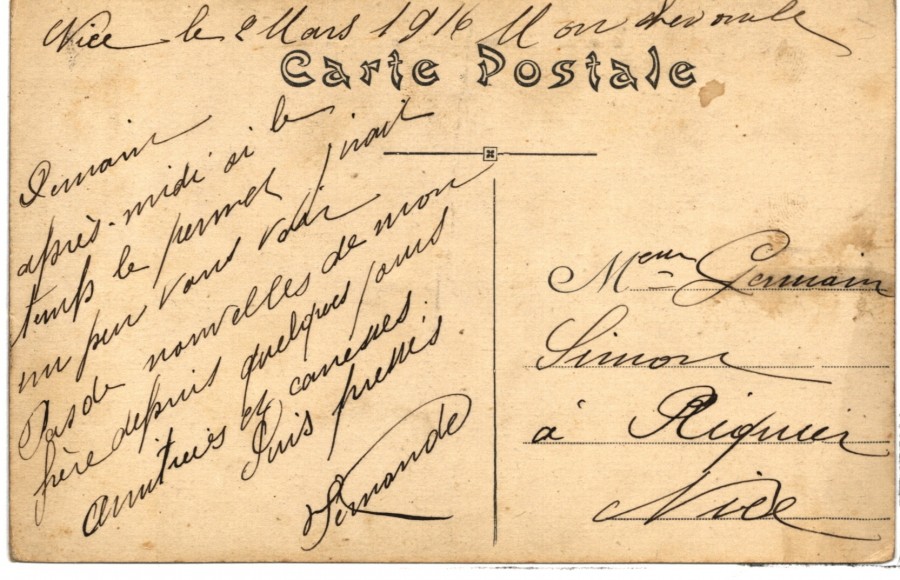 Nice le 2 Mars 1916 Mon
Carte Postale
Demain
après-midi si le
temps le permet j'irai
un peu vous voir
Pas de nouvelles de mon
frère depuis quelques jours
Amitiés et caresses.
Suis pressés
Fernande
Meur Germain
Simon
à Riquier
Nice